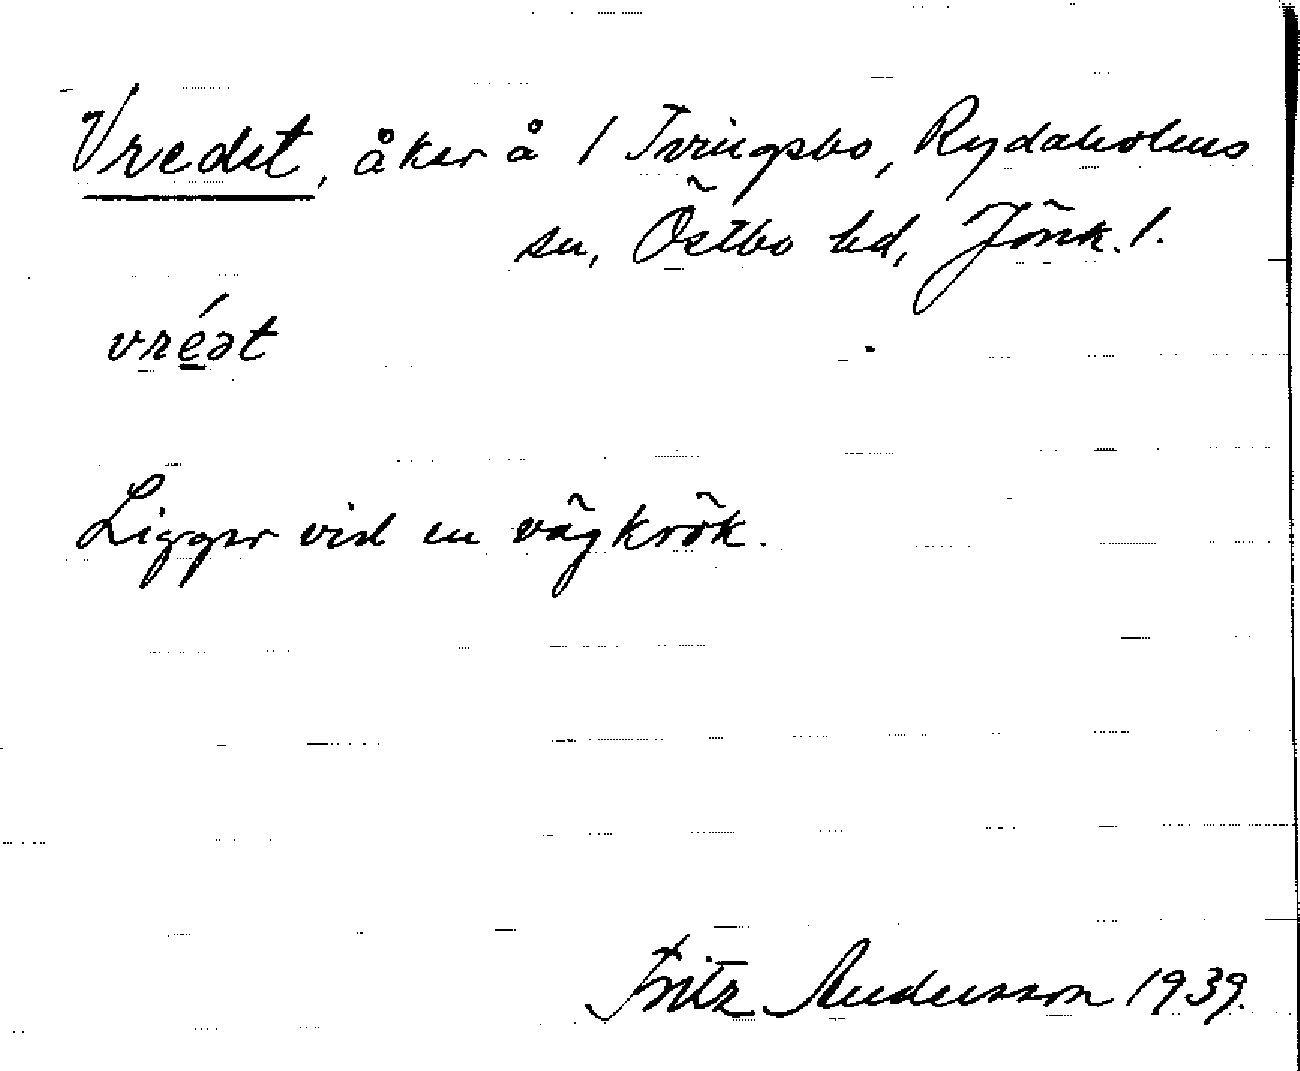 Vredet, åker å 1 Tvringsbo, Rydaholms
sn, Östbo hd, Jönk. l.
vréət
Ligger vid en vägkrök.
Fritz Andersson 1939.